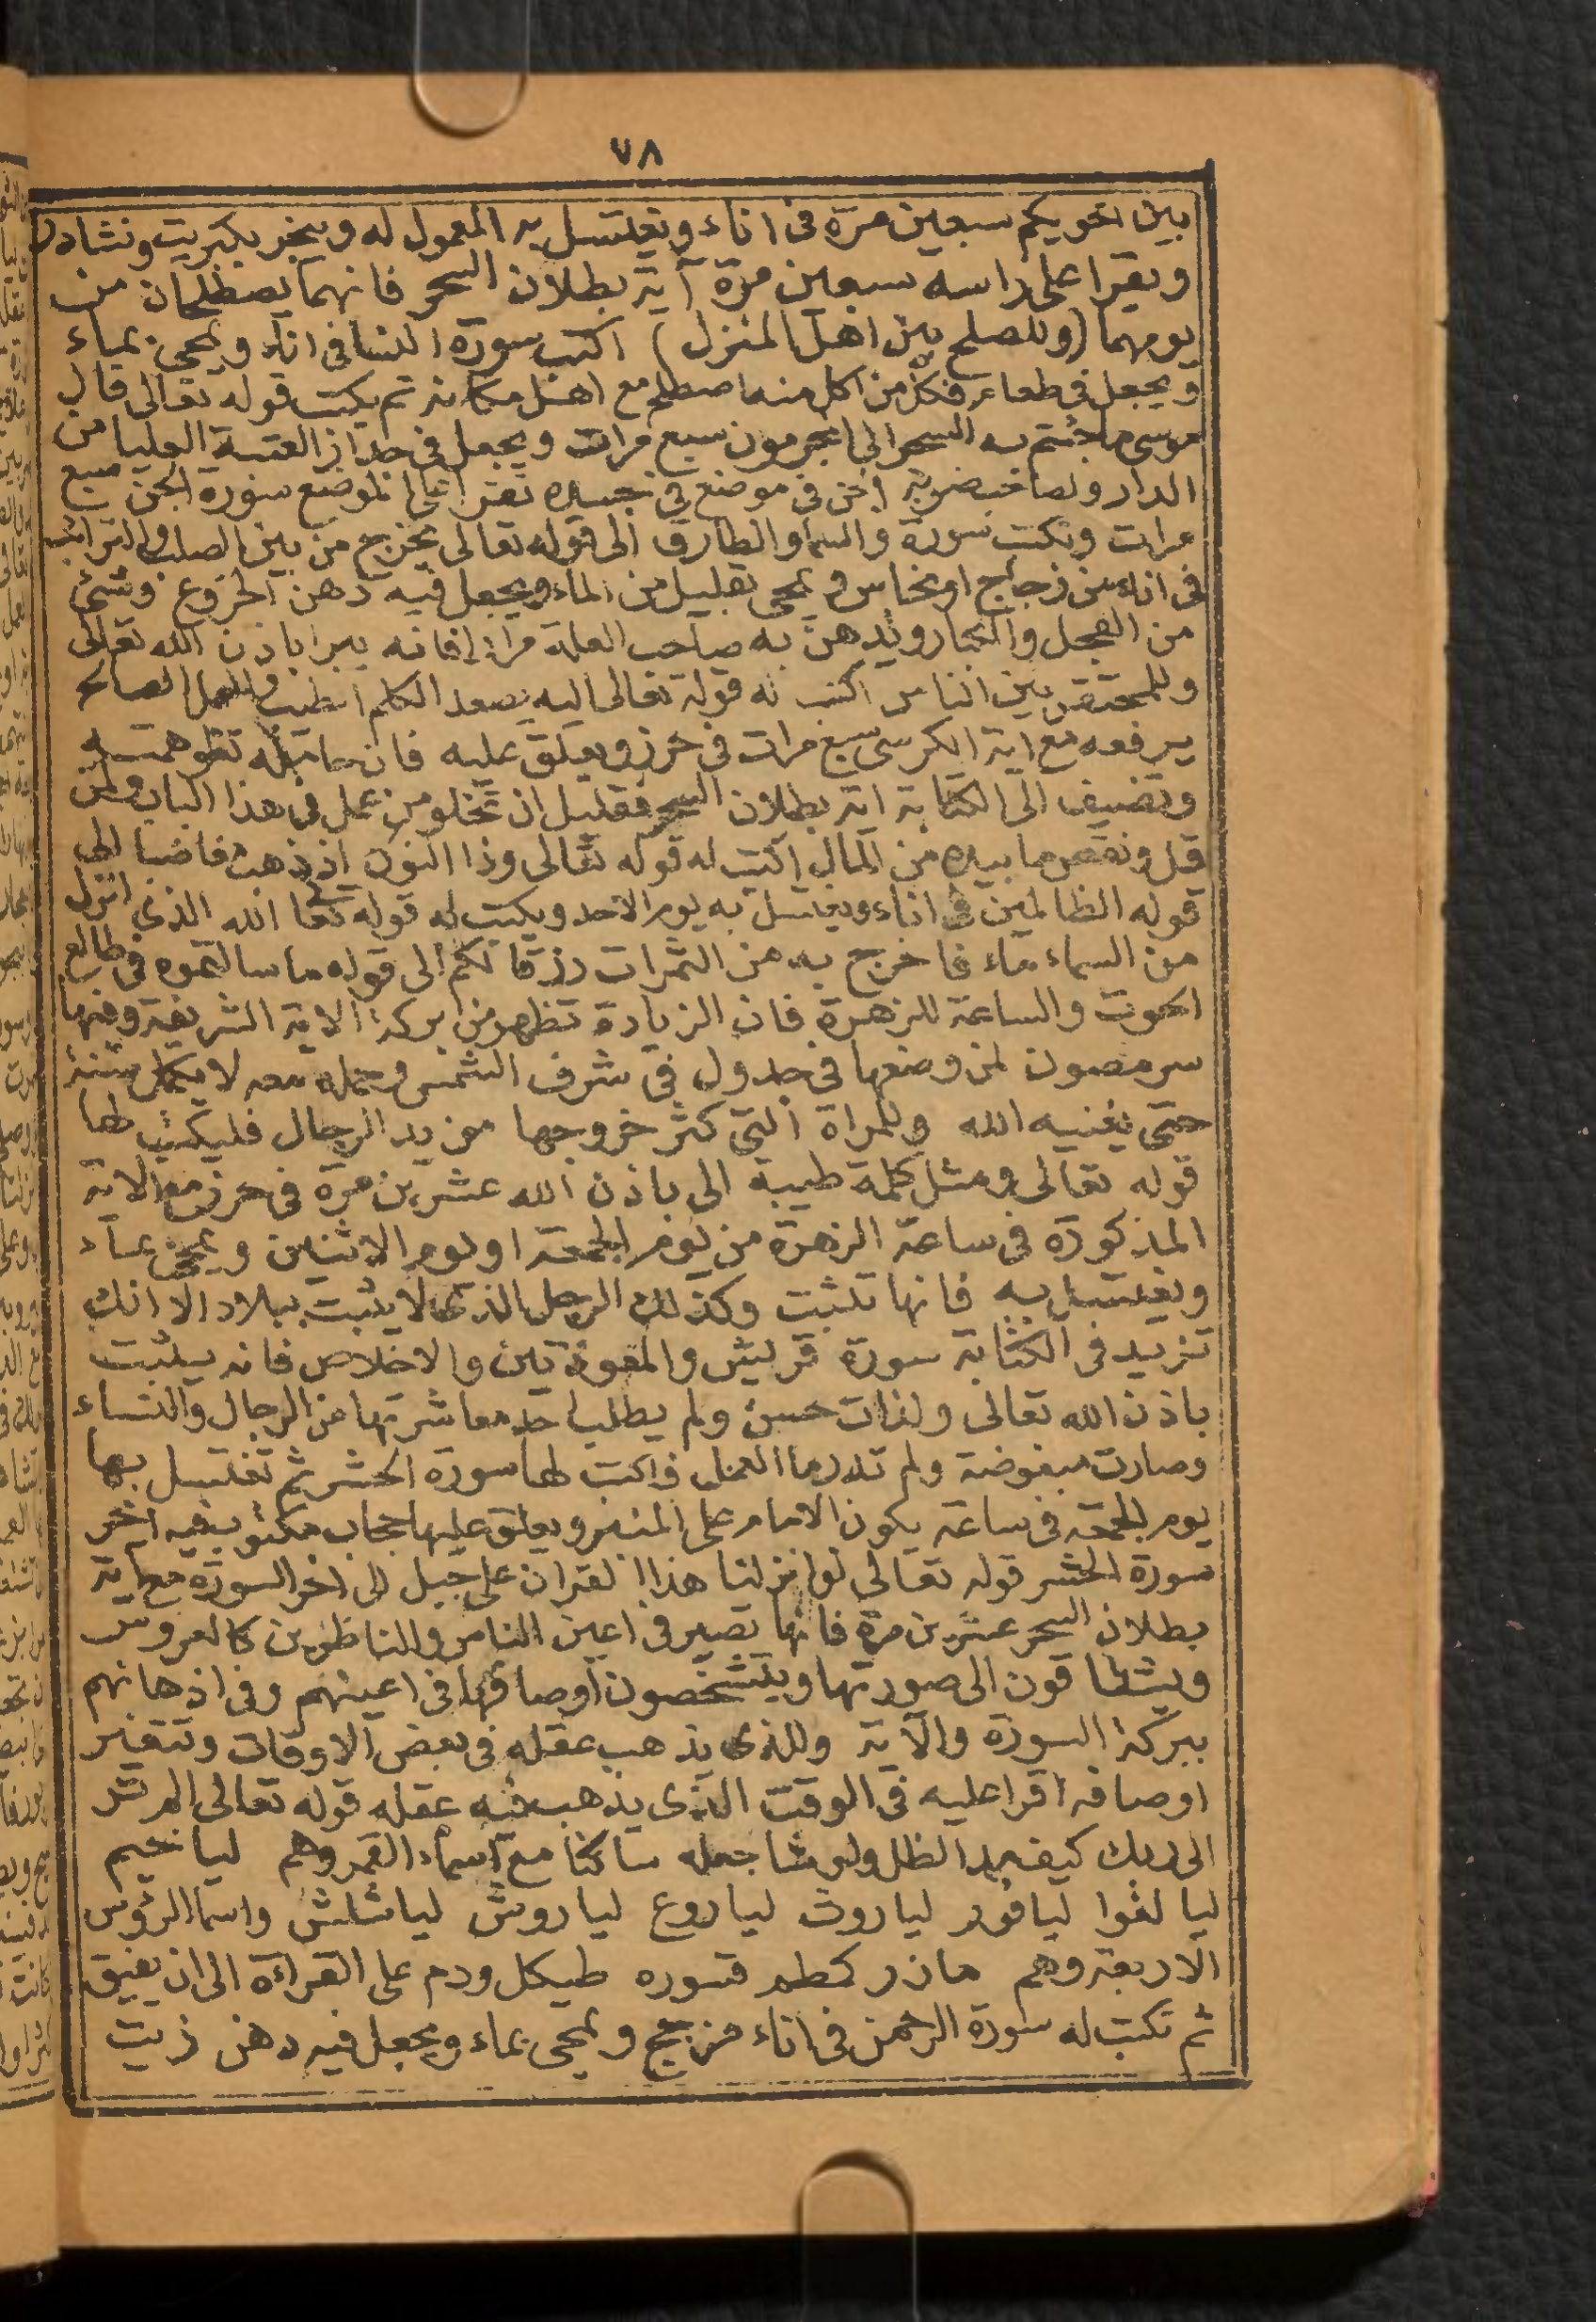 ٧٨
بين اخويكم سبعين مرة فى اناء ويغتسل به المعمول له ويبخر بكبريت ونشادر
ويقرا على راسه سبعين مرة آية بطلان السحر فانهما يصطلحان من
يومهما (وللصلح بين اهل المنزل) اكتب سورة النسا فى اناء ويمحى بماء
ويجعل فى طعام فكل من اكل منه اصطلح مع اهل مكانه ثم يكتب قوله تعالى قال
موسى ماجئتم به السحر الى المجرمون سبع مرات ويجعل فى جدار العتبة العليا من
الدار ولصاحب ضربة الجن فى موضع فى جسده تقرا على الموضع سورة الجن سبع
مرات وتكتب سورة والسما والطارق الى قوله تعالى يخرج من بين الصلب والترائب
فى اناء من زجاج او نحاس ويمحى بقليل من الماء ويجعل فيه دهن الخروع وشئ
من الفجل و ويدهن به صاحب العلة مرارا فانه يبرا باذن الله تعالى
وللمحتقر بين الناس اكتب له قوله تعالى اليه يصعد الكلم الطيب والعمل الصالح
يرفعه مع اية الكرسى سبع مرات فى حرز ويعلق عليه فان حامله تقو همته
وتضيف الى الكتابة اية بطلان السحر فقليل ان تخلو من عمل فى هذا الباب ولمن
قل ونقص ما بيده من المال اكتب له قوله تعالى وذا النون اذ ذهب مغاضبا الى
قوله الظالمين فى اناء ويغتسل به يوم الاحد ويكتب له قوله تعا الله الذى انزل
من السماء ماء فاخرج به من الثمرات رزقا لكم الى قوله ما سالتموه فى طالع
الحوت والساعة للزهرة فان الزيادة تظهر من بركة الاية الشريفة وفيها
سر مصون لمن وضعها فى جدول فى شرف الشمس وحمله معه لا يكمل سنة
حتى يغنيه الله وللمراة التى كثر خروجها من يد الرجال فليكتب لها
قوله تعالى ومثل كلمة طيبة الى باذن الله عشرين مرة فى حرز مع الاية
المذكورة فى ساعة الزهرة من يوم الجمعة او يوم الاثنين ويمحى بماء
ويغتسل به فانها تثبت وكذلك الرجل الذى لا يثبت ببلاد الا انك
تزيد فى الكتابة سورة قريش والمعوذتين والاخلاص فانه يثبت
باذن الله تعالى ولذات حسن ولم يطلب احد معاشرتها من الرجال والنساء
وصارت مبغوضة ولم تدر ما العمل فاكتب لها سورة الحشر ثم تغتسل بها
يوم الجمعة فى ساعة يكون الامام على المنبر ويعلق عليها حجاب مكتوب فيه اخر
سورة الحشر قوله تعالى لو انزلنا هذا القران على جبل الى اخر السورة مع اية
بطلان السحر عشرين مرة فانها تصير فى اعين الناس والناظرين كالعروس
ويشتاقون الى صورتها ويتشخصون اوصافها فى اعينهم وفى اذهانهم
ببركة السورة والآية وللذى يذهب عقله فى بعض الاوقات وتتغير
اوصافه اقرا عليه فى الوقت الذى يذهب فيه عقله قوله تعالى الم تر
الى ربك كيف مد الظل ولو شا جعله ساكنا مع اسماء القمر وهم لياخيم
ليالغوا ليافور لياروث لياروع لياروش لياشلش واسما الرؤس
الاربعة وهم مازر كمطم قسوره طيكل ودم على القراءة الى ان يفيق
ثم تكتب له سورة الرحمن فى اناء مزجج ويمحى بماء ويجعل فيه دهن زيت